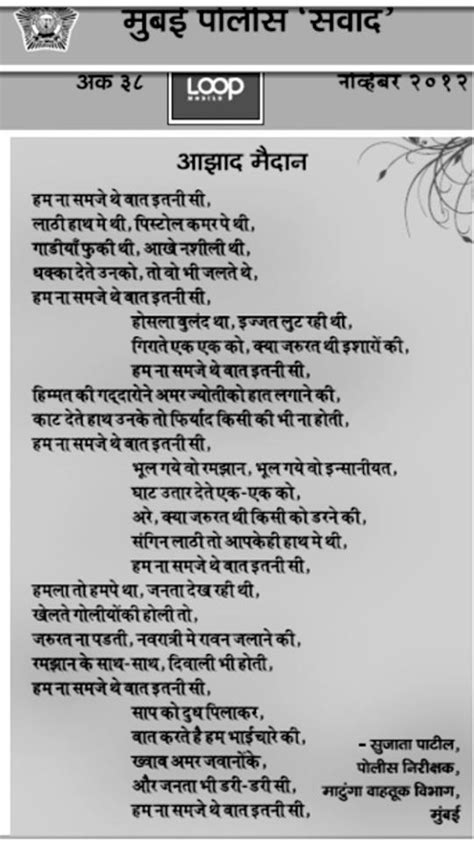 मुंबई पोलीस ‘संवाद’
अंक ३८
LOOP
MOBILE
नोव्हेंबर २०१२
आझाद मैदान
हम ना समजे थे बात इतनी सी,
लाठी हाथ मे थी, पिस्टोल कमर पे थी,
गाडीयाँ फुकी थी, आखे नशीली थी,
धक्का देते उनको, तो वो भी जलते थे,
हम ना समजे थे बात इतनी सी,
होसला बुलंद था, इज्जत लुट रही थी,
गिराते एक एक को, क्या जरुरत थी इशारों की,
हम ना समजे थे बात इतनी सी,
हिम्मत की गद्दारोने अमर ज्योतीको हात लगाने की,
काट देते हाथ उनके तो फिर्याद किसी की भी ना होती,
हम ना समजे थे बात इतनी सी,
भूल गये वो रमझान, भूल गये वो इन्सानीयत,
घाट उतार देते एक-एक को,
अरे, क्या जरुरत थी किसी को डरने की,
संगिन लाठी तो आपकेही हाथ मे थी,
हम ना समजे थे बात इतनी सी,
हमला तो हमपे था, जनता देख रही थी,
खेलते गोलीयोंकी होली तो,
जरुरत ना पडती, नवरात्री मे रावन जलाने की,
रमझान के साथ-साथ, दिवाली भी होती,
हम ना समजे थे बात इतनी सी,
साप को दुध पिलाकर,
बात करते है हम भाईचारे की,
ख्वाब अमर जवानोंके,
और जनता भी डरी-डरी सी,
हम ना समजे थे बात इतनी सी,
– सुजाता पाटील,
पोलीस निरीक्षक,
माटुंगा वाहतूक विभाग,
मुंबई